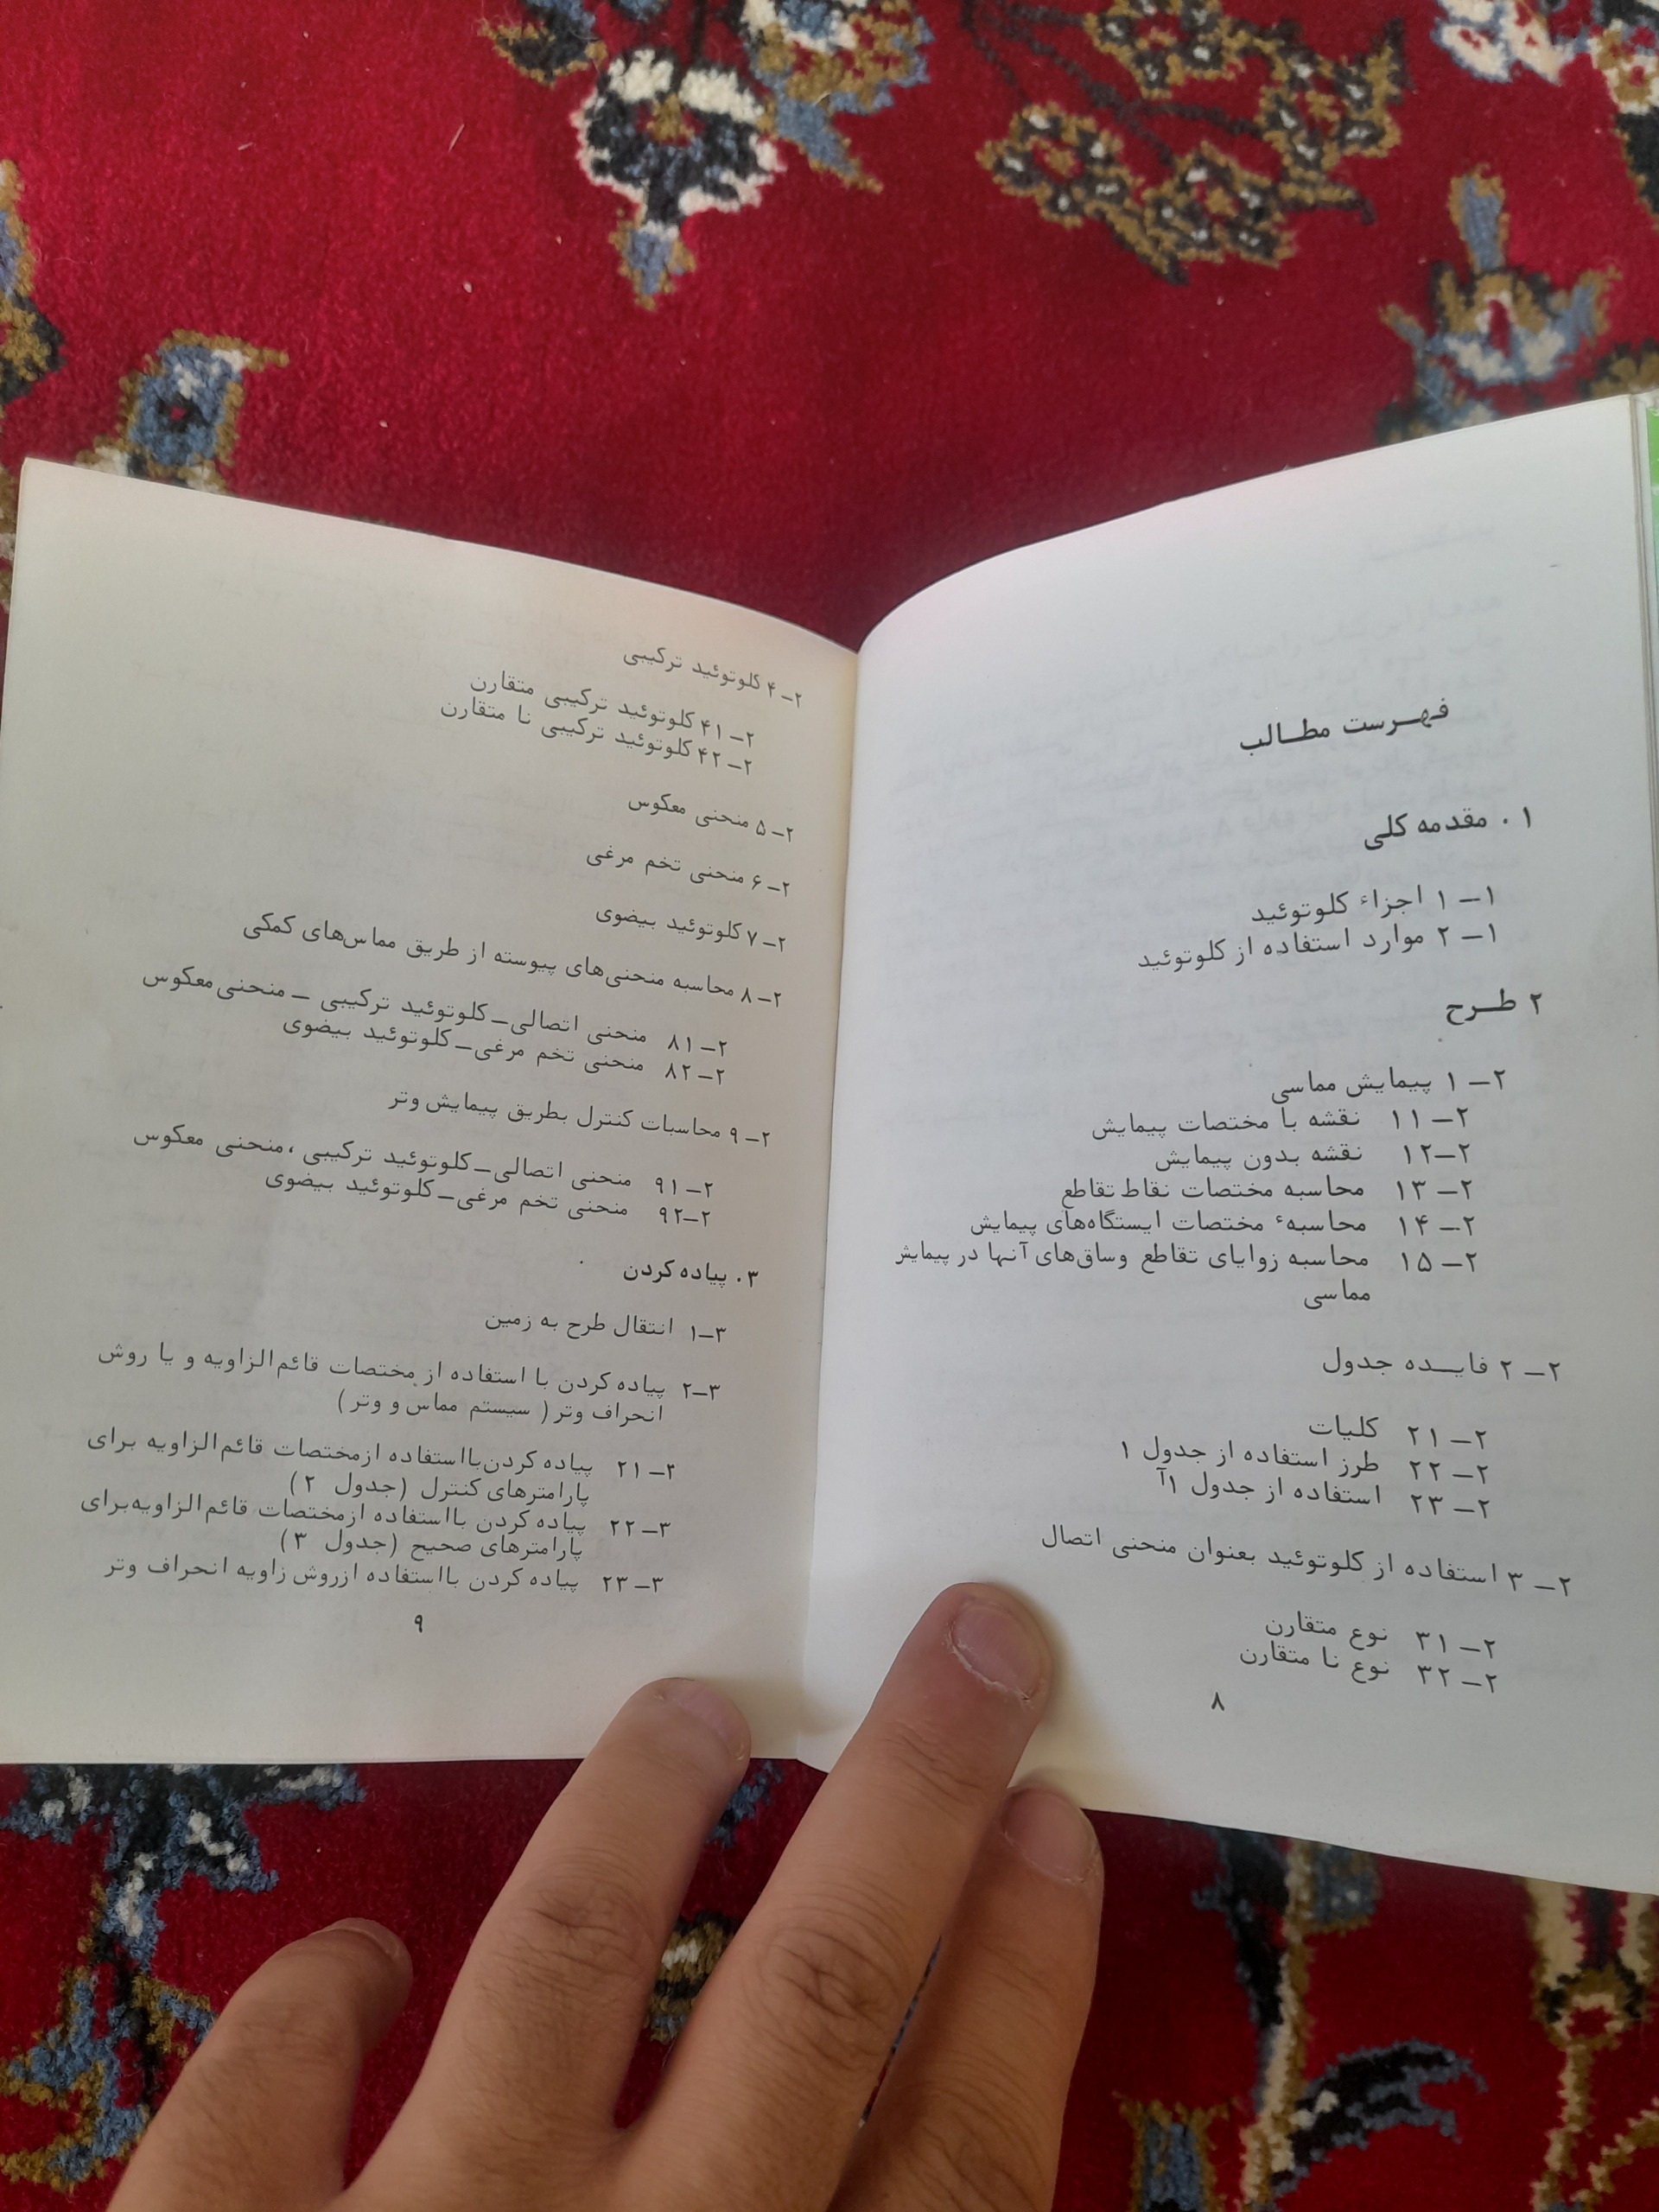 فهـرست مطـالب
۱ . مقدمه کلی
۱ – ۱ اجزاء کلوتوئید
۱ – ۲ موارد استفاده از کلوتوئید
۲ طـرح
۲ – ۱ پیمایش مماسی
۲ – ۱۱ نقشه با مختصات پیمایش
۲ – ۱۲ نقشه بدون پیمایش
۲ – ۱۳ محاسبه مختصات نقاط تقاطع
۲ – ۱۴ محاسبهٔ مختصات ایستگاه‌های پیمایش
۲ – ۱۵ محاسبه زوایای تقاطع وساق‌های آنها در پیمایش
مماسی
۲ – ۲ فایـده جدول
۲ – ۲۱ کلیات
۲ – ۲۲ طرز استفاده از جدول ۱
۲ – ۲۳ استفاده از جدول ۱آ
۲ – ۳ استفاده از کلوتوئید بعنوان منحنی اتصال
۲ – ۳۱ نوع متقارن
۲ – ۳۲ نوع نا متقارن
۸
۲ – ۴ کلوتوئید ترکیبی
۲ – ۴۱ کلوتوئید ترکیبی متقارن
۲ – ۴۲ کلوتوئید ترکیبی نا متقارن
۲ – ۵ منحنی معکوس
۲ – ۶ منحنی تخم مرغی
۲ – ۷ کلوتوئید بیضوی
۲ – ۸ محاسبه منحنی‌های پیوسته از طریق مماس‌های کمکی
۲ – ۸۱ منحنی اتصالی – کلوتوئید ترکیبی – منحنی معکوس
۲ – ۸۲ منحنی تخم مرغی – کلوتوئید بیضوی
۲ – ۹ محاسبات کنترل بطریق پیمایش وتر
۲ – ۹۱ منحنی اتصالی – کلوتوئید ترکیبی ، منحنی معکوس
۲ – ۹۲ منحنی تخم مرغی – کلوتوئید بیضوی
۳ . پیاده کردن
۳ – ۱ انتقال طرح به زمین
۳ – ۲ پیاده کردن با استفاده از مختصات قائم‌الزاویه و یا روش
انحراف وتر ( سیستم مماس و وتر )
۳ – ۲۱ پیاده کردن بااستفاده ازمختصات قائم‌الزاویه برای
پارامترهای کنترل (جدول ۲ )
۳ – ۲۲ پیاده کردن بااستفاده ازمختصات قائم‌الزاویه برای
پارامترهای صحیح (جدول ۳ )
۳ – ۲۳ پیاده کردن بااستفاده ازروش زاویه انحراف وتر
۹